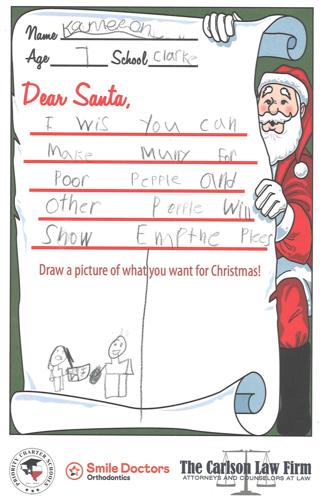 Name Kameron
Age 7 School Clarke
Dear Santa,
I wis you can
Make muny For
Poor Perple and
Other Porple Will
Show Empthe Plees
Draw a picture of what you want for Christmas!
PRIORITY CHARTER SCHOOLS
Smile Doctors
Orthodontics
The Carlson Law Firm
ATTORNEYS AND COUNSELORS AT LAW